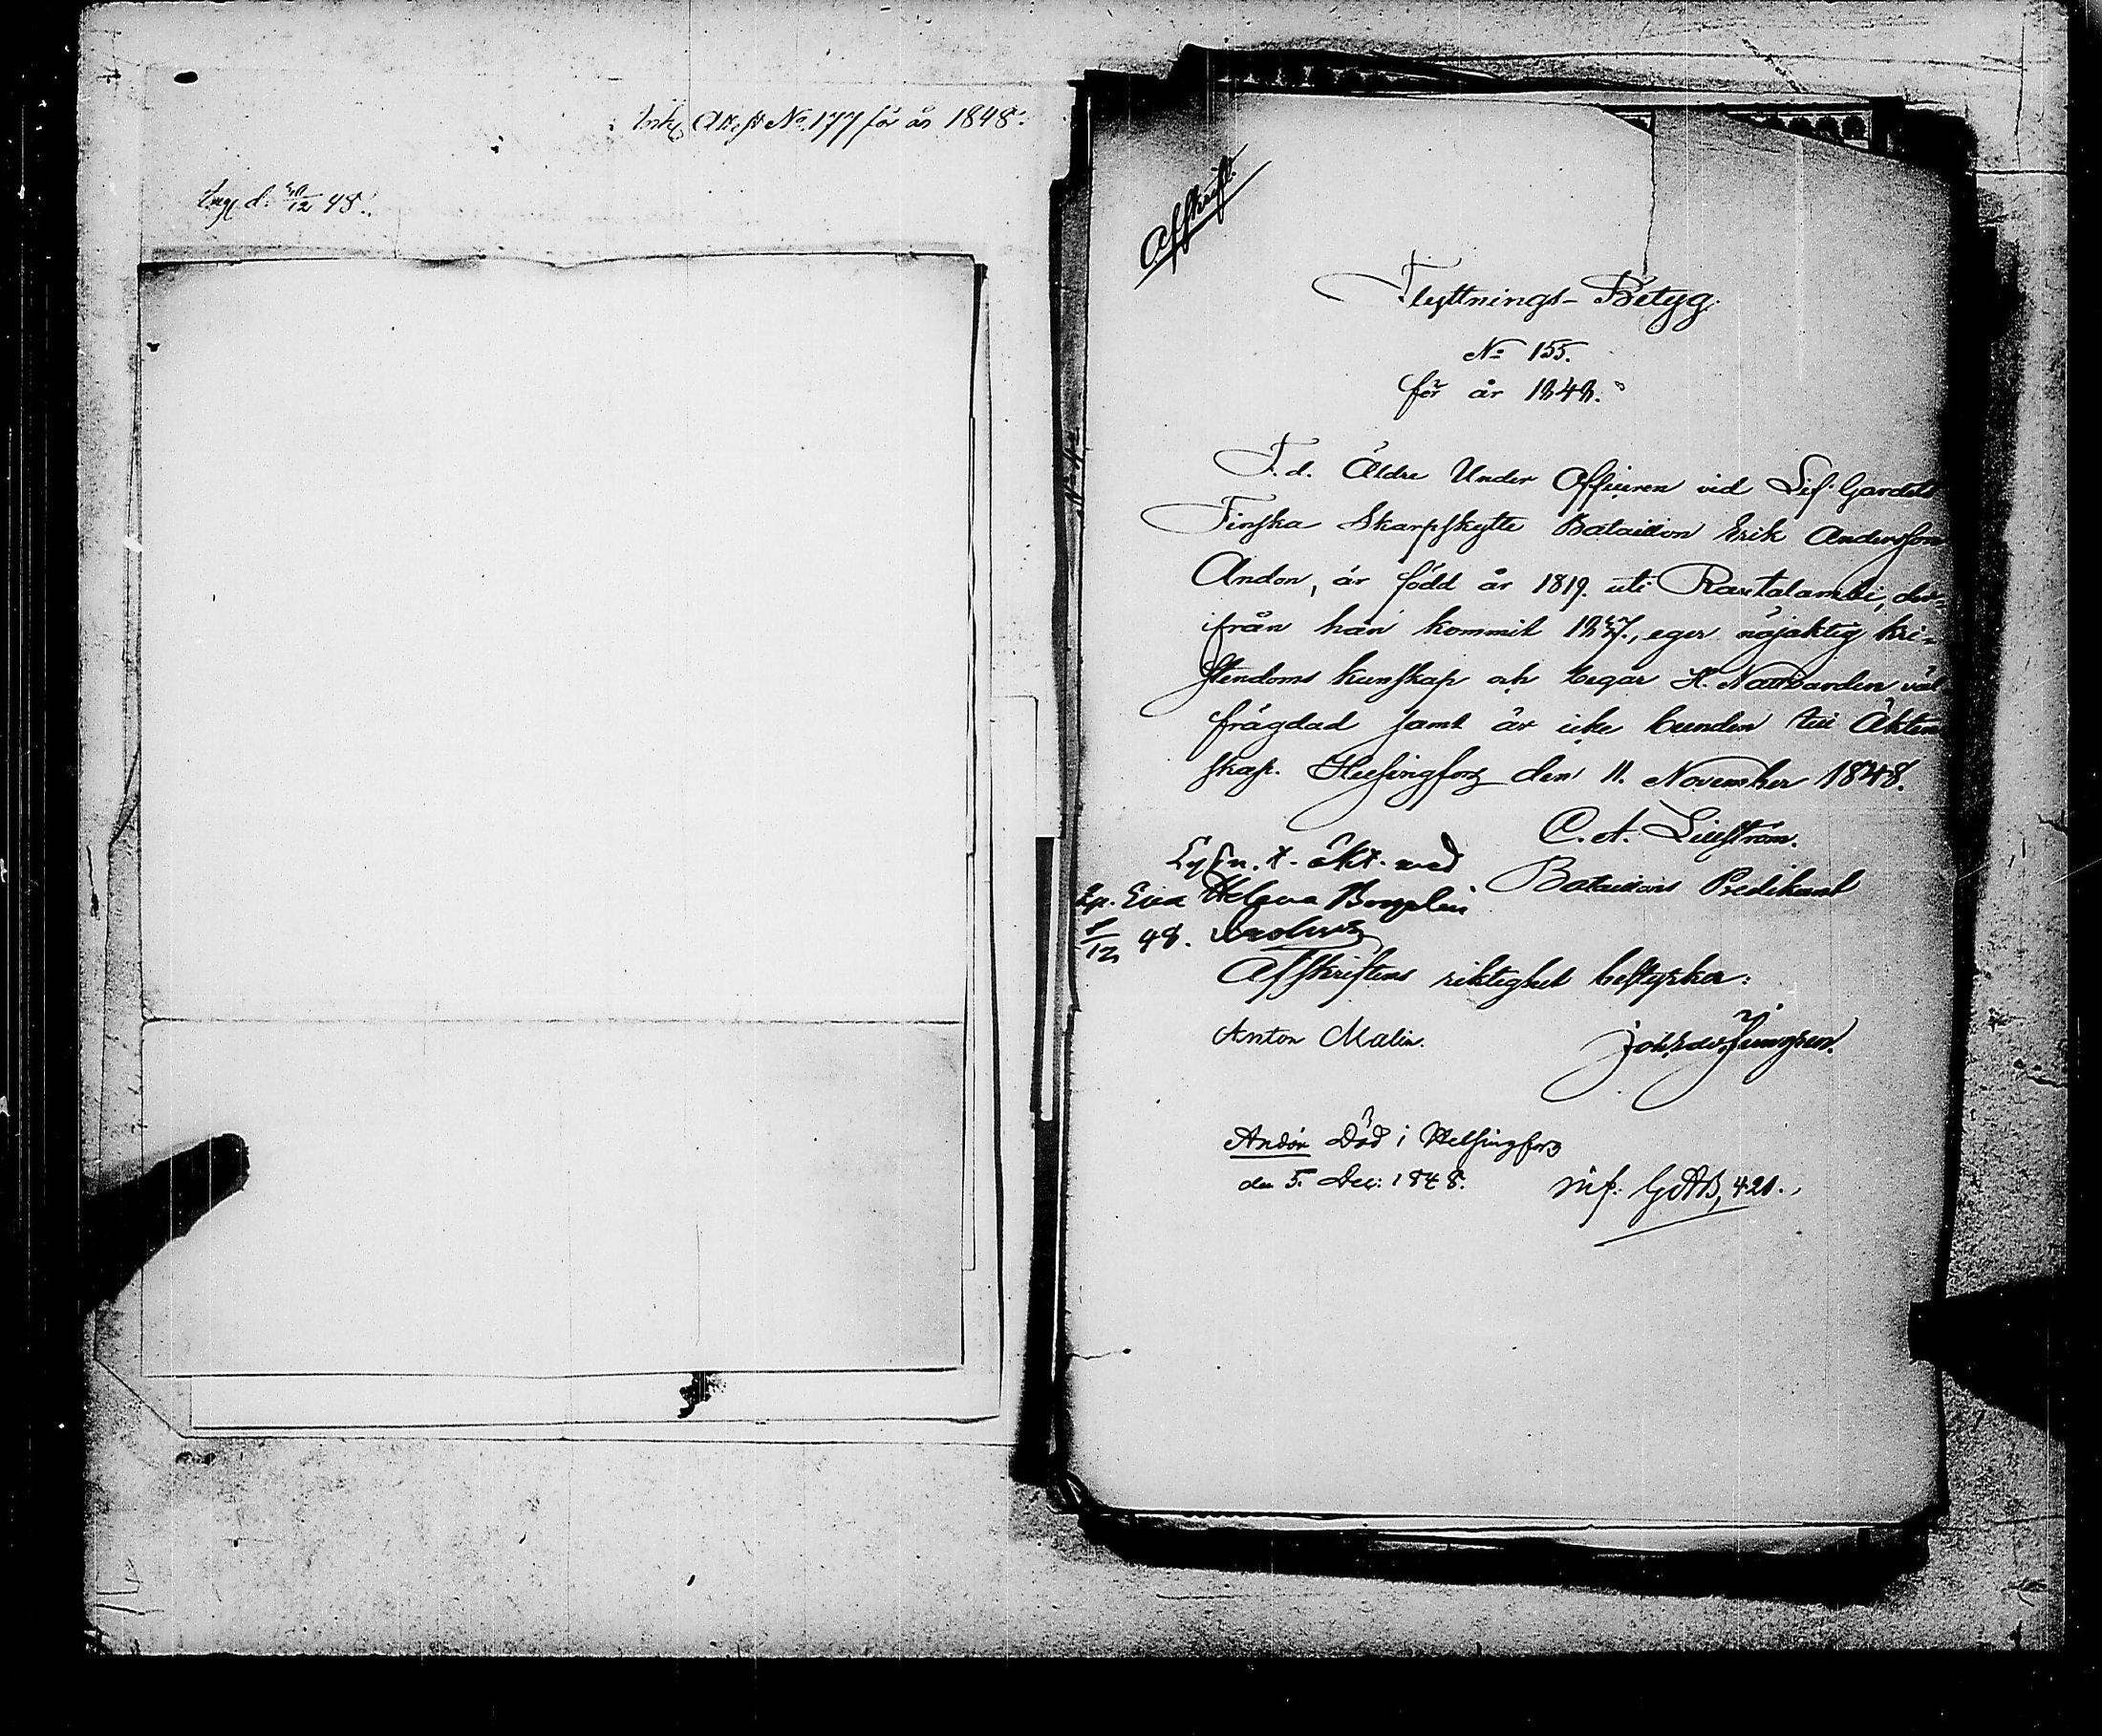 Attest No 177 för år 1848.
d. 30/12 48.
Afskrift.
Flyttnings-Betyg.
No 155.
för år 1848.
F. d. Äldre Under Officeren vid Lif Gardets
Finska Skarpskytte Bataillon Erik Andersson
Andon, är född år 1819. uti Rautalambi, der=
ifrån han kommit 1837., eger nöjaktig kri=
stendoms kunskap och begår H. Nattvarden väl
frägdad samt är icke bunden till Äkten
skap. Helsingfors den 11. November 1848.
C. A. Lillström.
Bataillons Predikant
Lysn. t. äkt. med
Eva Helena
/12 48.
Afskriftens riktighet bestyrker:
Anton Malin.
Ljungren.
Andon Död i Helsingfors
den 5. Dec: 1848.
421.